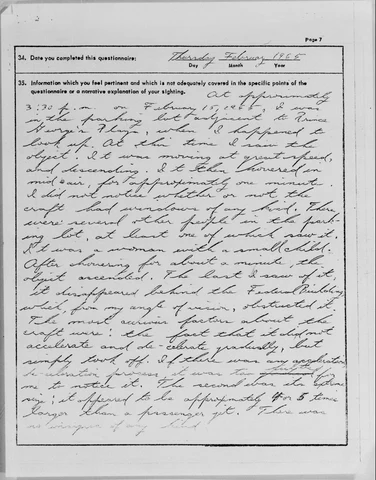 Page 7
34. Date you completed this questionnaire: Thursday February 1965
Day Month Year
35. Information which you feel pertinent and which is not adequately covered in the specific points of the
questionnaire or a narrative explanation of your sighting.
At approximately
3:30 p.m. on February 15, 1965, I was
in the parking lot adjacent to Prince
George's Plaza, when I happened to
look up. At this time I saw the
object. It was moving at great speed,
and descending. It then hovered in
mid-air, for approximately one minute.
I did not notice whether or not the
craft had translucency of any kind. There
were several other people in the park-
ing lot, at least one of which saw it.
It was a woman with a small child.
After hovering for about a minute, the
object ascended. The last I saw of it,
it disappeared behind the Federal Building
which, from my angle of vision, obstructed it.
The most curious factors about the
craft was: the fact that it did not
accelerate and de-celerate gradually, but
simply took off. If there was any acceleration
de-celeration process, it was too for
me to notice it. The second was its
size; it appeared to be approximately 4 or 5 times
larger than a passenger jet. There was
no of any kind